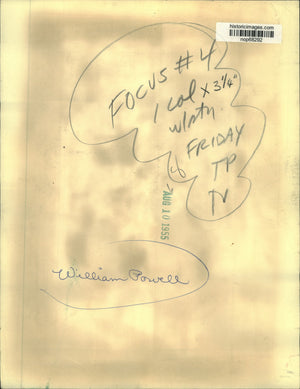 historicimages.com
nop68292
FOCUS #4
1 col x 3 1/4"
FRIDAY
TP
TV
AUG 10 1955
William Powell